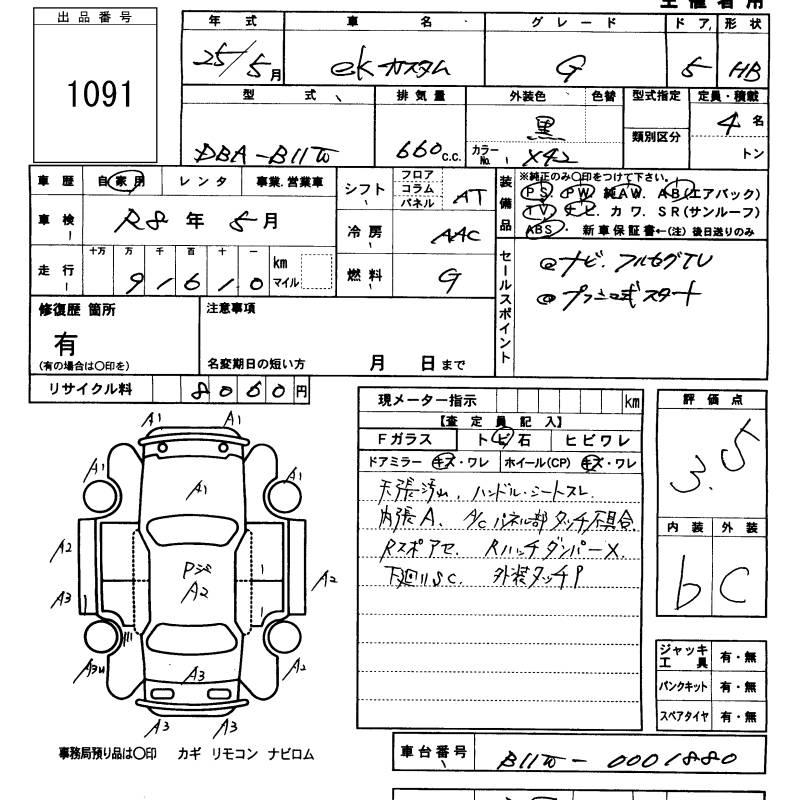 主催者用
出品番号
1091
年式 車名 グレード ドア 形状
25/5月 eKカスタム G 5 HB
型式 排気量 外装色 色替 型式指定 定員・積載
類別区分
DBA-B11W 660c.c. 黒 4名
カラーNo. X42 トン
車歴 自家用 レンタ 事業.営業車
車検 R8年5月
走行 十万 万 千 百 十 一
91610 km マイル
シフト フロア コラム パネル AT
冷房 AAC
燃料 G
装備品 ※純正のみ〇印をつけて下さい。
PS. PW. 純AW. AB(エアバック)
TV. ナビ. カワ. SR(サンルーフ)
ABS. 新車保証書←(注)後日送りのみ
セールスポイント
◎ナビ. フルセグTV
◎プッシュ式スタート
修復歴 箇所
有
(有の場合は〇印を)
注意事項
名変期日の短い方 月 日まで
リサイクル料 8060円
現メーター指示 km
【査定員記入】
Fガラス トビ石 ヒビワレ
ドアミラー キズ・ワレ ホイール(CP) キズ・ワレ
天張汚山. ハンドル・シートスレ.
内張A. A/Cパネル部タッチ不具合.
Rスポアセ. RハッチダンパーX.
下回りSC. 外装タッチP
評価点
3.5
内装 外装
b C
ジャッキ工具 有・無
パンクキット 有・無
スペアタイヤ 有・無
A1 A1
A1 A1
A1
A2 A2
PジA2
A3
A3W A2
A3
A3 A3
事務局預り品は〇印 カギ リモコン ナビロム
車台番号 B11W-0001880